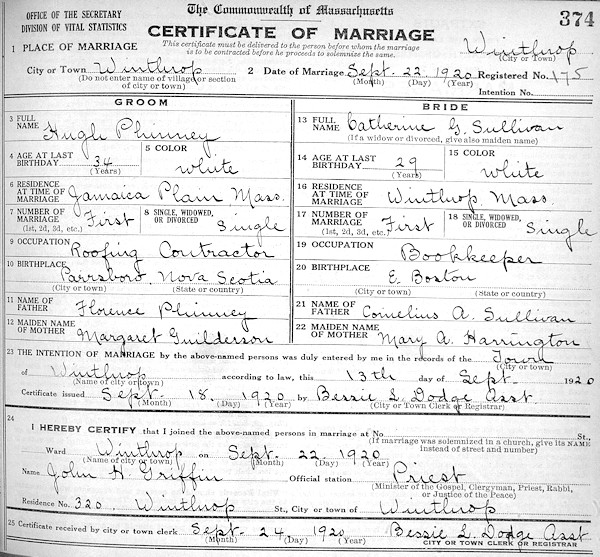 OFFICE OF THE SECRETARY
DIVISION OF VITAL STATISTICS
The Commonwealth of Massachusetts
374
CERTIFICATE OF MARRIAGE
This certificate must be delivered to the person before whom the marriage
is to be contracted before he proceeds to solemnize the same.
Winthrop
(City or Town)
1 PLACE OF MARRIAGE
City or Town Winthrop 2 Date of Marriage Sept. 22, 1920 Registered No. 175
(Do not enter name of village or section
of city or town)
(Month) (Day) (Year)
Intention No.
GROOM
BRIDE
3 FULL NAME Hugh Phinney
13 FULL NAME Catherine G. Sullivan
(If a widow or divorced, give also maiden name)
4 AGE AT LAST BIRTHDAY 34 (Years) 5 COLOR white
14 AGE AT LAST BIRTHDAY 29 (Years) 15 COLOR white
6 RESIDENCE AT TIME OF MARRIAGE Jamaica Plain Mass.
16 RESIDENCE AT TIME OF MARRIAGE Winthrop Mass.
7 NUMBER OF MARRIAGE First (1st, 2d, 3d, etc.) 8 SINGLE, WIDOWED, OR DIVORCED Single
17 NUMBER OF MARRIAGE First (1st, 2d, 3d, etc.) 18 SINGLE, WIDOWED OR DIVORCED Single
9 OCCUPATION Roofing Contractor
19 OCCUPATION Bookkeeper
10 BIRTHPLACE Parrsboro, Nova Scotia
(City or town) (State or country)
20 BIRTHPLACE E. Boston
(City or town) (State or country)
11 NAME OF FATHER Florence Phinney
21 NAME OF FATHER Cornelius A. Sullivan
12 MAIDEN NAME OF MOTHER Margaret Guilderson
22 MAIDEN NAME OF MOTHER Mary A. Harrington
23 THE INTENTION OF MARRIAGE by the above-named persons was duly entered by me in the records of the Town
(City or town)
of Winthrop according to law, this 13th day of Sept. 1920
(Name of city or town)
Certificate issued Sept. 18, 1920 by Bessie L. Dodge Asst.
(Month) (Day) (Year) (City or Town Clerk or Registrar)
24
I HEREBY CERTIFY that I joined the above-named persons in marriage at No. St.,
(If marriage was solemnized in a church, give its NAME
instead of street and number)
Ward Winthrop on Sept. 22, 1920
(Name of city or town) (Month) (Day) (Year)
Name John H. Griffin Official station Priest
(Minister of the Gospel, Clergyman, Priest, Rabbi,
or Justice of the Peace)
Residence No. 320. Winthrop St., City or town of Winthrop
25 Certificate received by city or town clerk Sept. 24 1920 Bessie L. Dodge Asst
(Month) (Day) (Year) CITY OR TOWN CLERK OR REGISTRAR